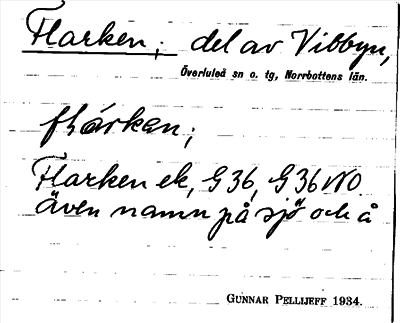 Flarken; del av Vibbyn,
Överluleå sn o. tg, Norrbottens län.
flárken;
Flarken ek, G 36, G 36 NO
även namn på sjö och å
GUNNAR PELLIJEFF 1934.